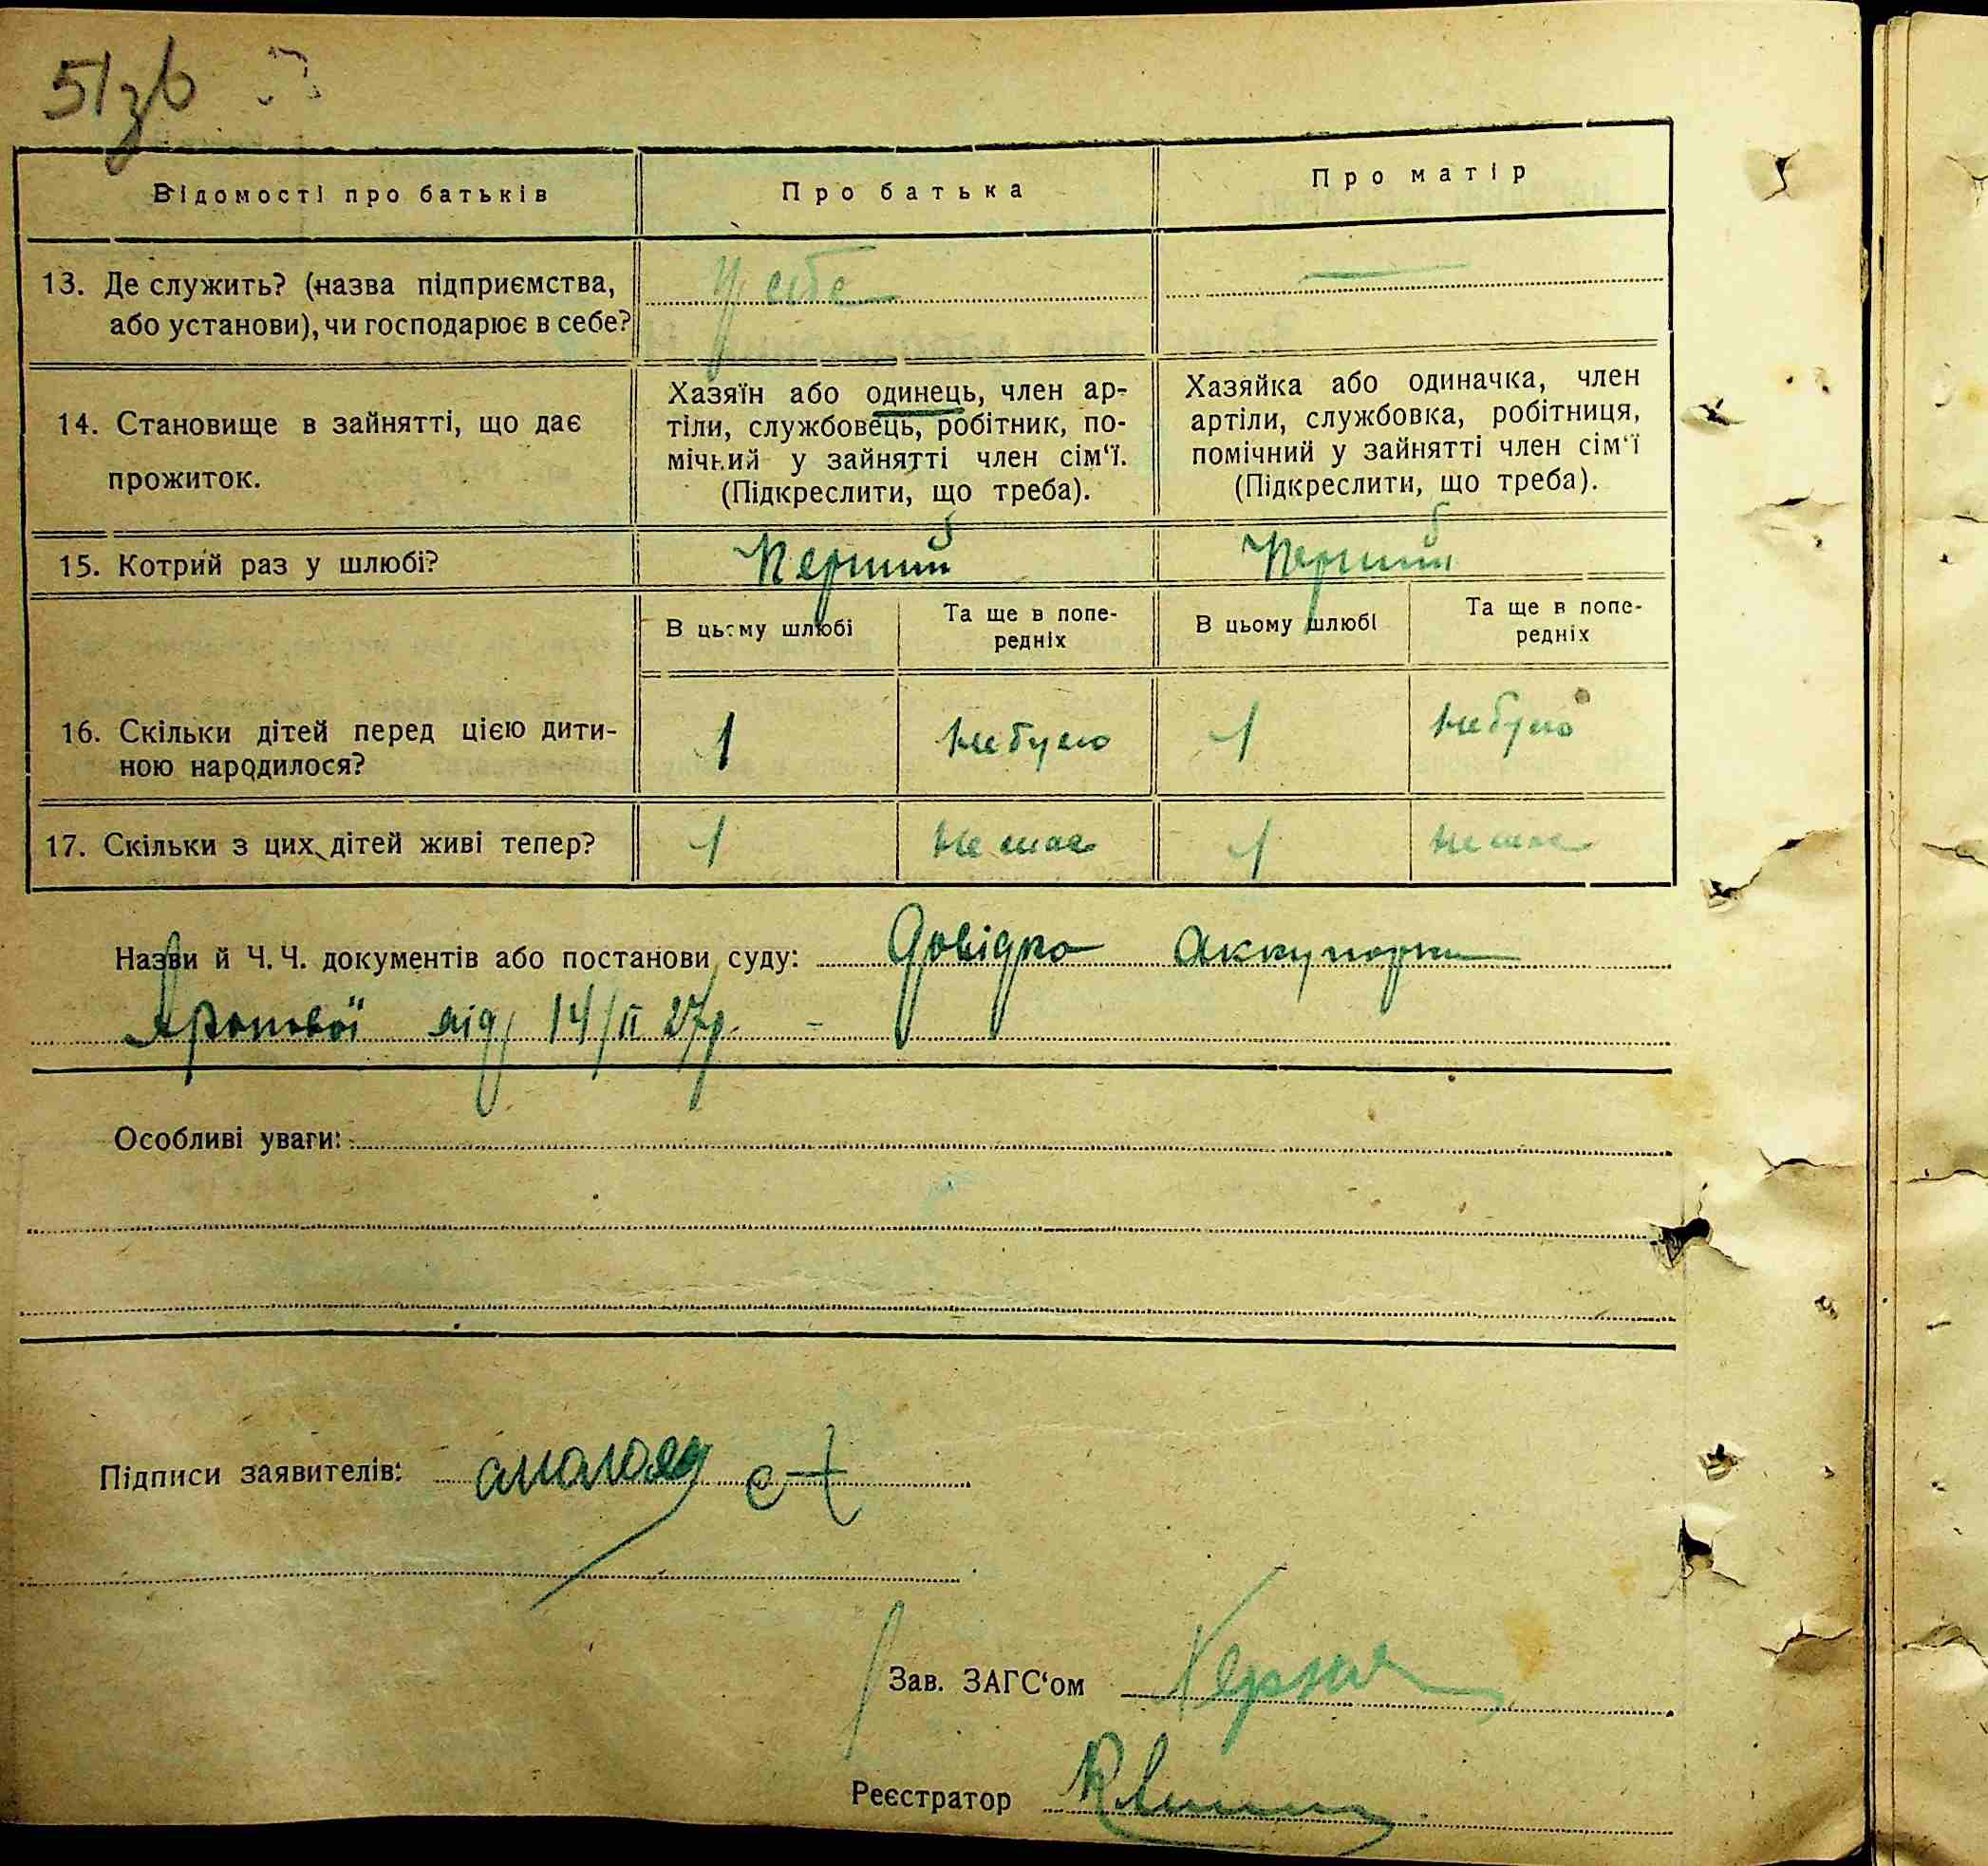 51зв
Відомості про батьків
Про батька
Про матір
13. Де служить? (назва підприємства,
або установи), чи господарює в себе?
У себе
—
14. Становище в зайнятті, що дає
прожиток.
Хазяїн або одинець, член ар-
тіли, службовець, робітник, по-
мічний у зайнятті член сім‘ї.
(Підкреслити, що треба).
Хазяйка або одиначка, член
артіли, службовка, робітниця,
помічний у зайнятті член сім‘ї
(Підкреслити, що треба).
15. Котрий раз у шлюбі?
Перший
Перший
В цьому шлюбі
Та ще в попе-
редніх
В цьому шлюбі
Та ще в попе-
редніх
16. Скільки дітей перед цією дити-
ною народилося?
1
Не було
1
Не було
17. Скільки з цих дітей живі тепер?
1
Не має
1
Не має
Назви й Ч. Ч. документів або постанови суду: Довідка Аккушорки
від 14/II 27р.
Особливі уваги:
Підписи заявителів:
Зав. ЗАГС‘ом
Реєстратор